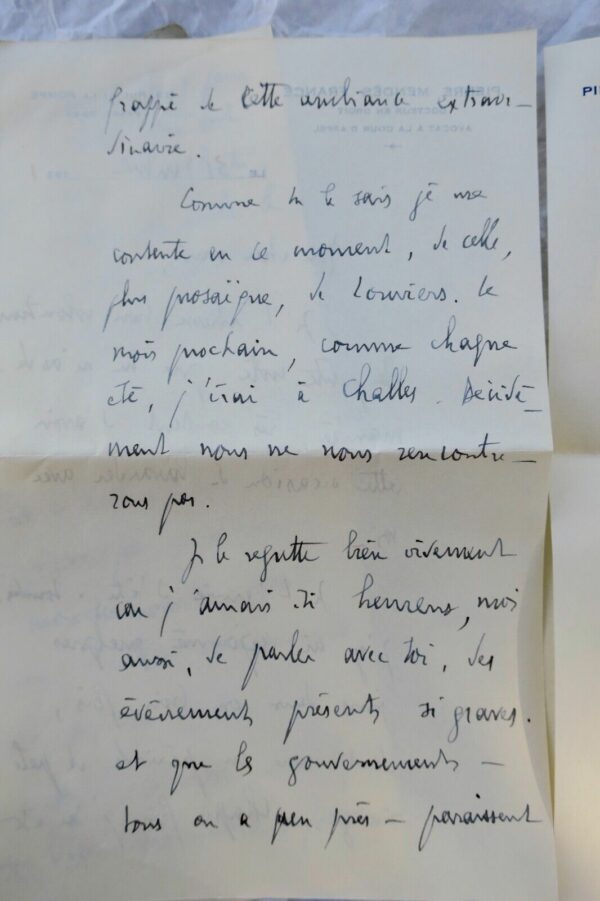 frappé de cette ambiance extraor-
dinaire.
Comme tu le sais je me
contente en ce moment, de celle,
plus prosaïque, de Louviers. Le
mois prochain, comme chaque
été, j'irai à Challes. Décidé-
ment nous ne nous rencontre-
rons pas.
Je le regrette bien vivement
car j'aurais été heureux, moi
aussi, de parler avec toi, des
évènements présents si graves.
et que les gouvernements -
tous ou a peu près - paraissent
PIERRE MENDÈS FRANCE
DOCTEUR EN DROIT
AVOCAT A LA COUR D'APPEL
LE
PI